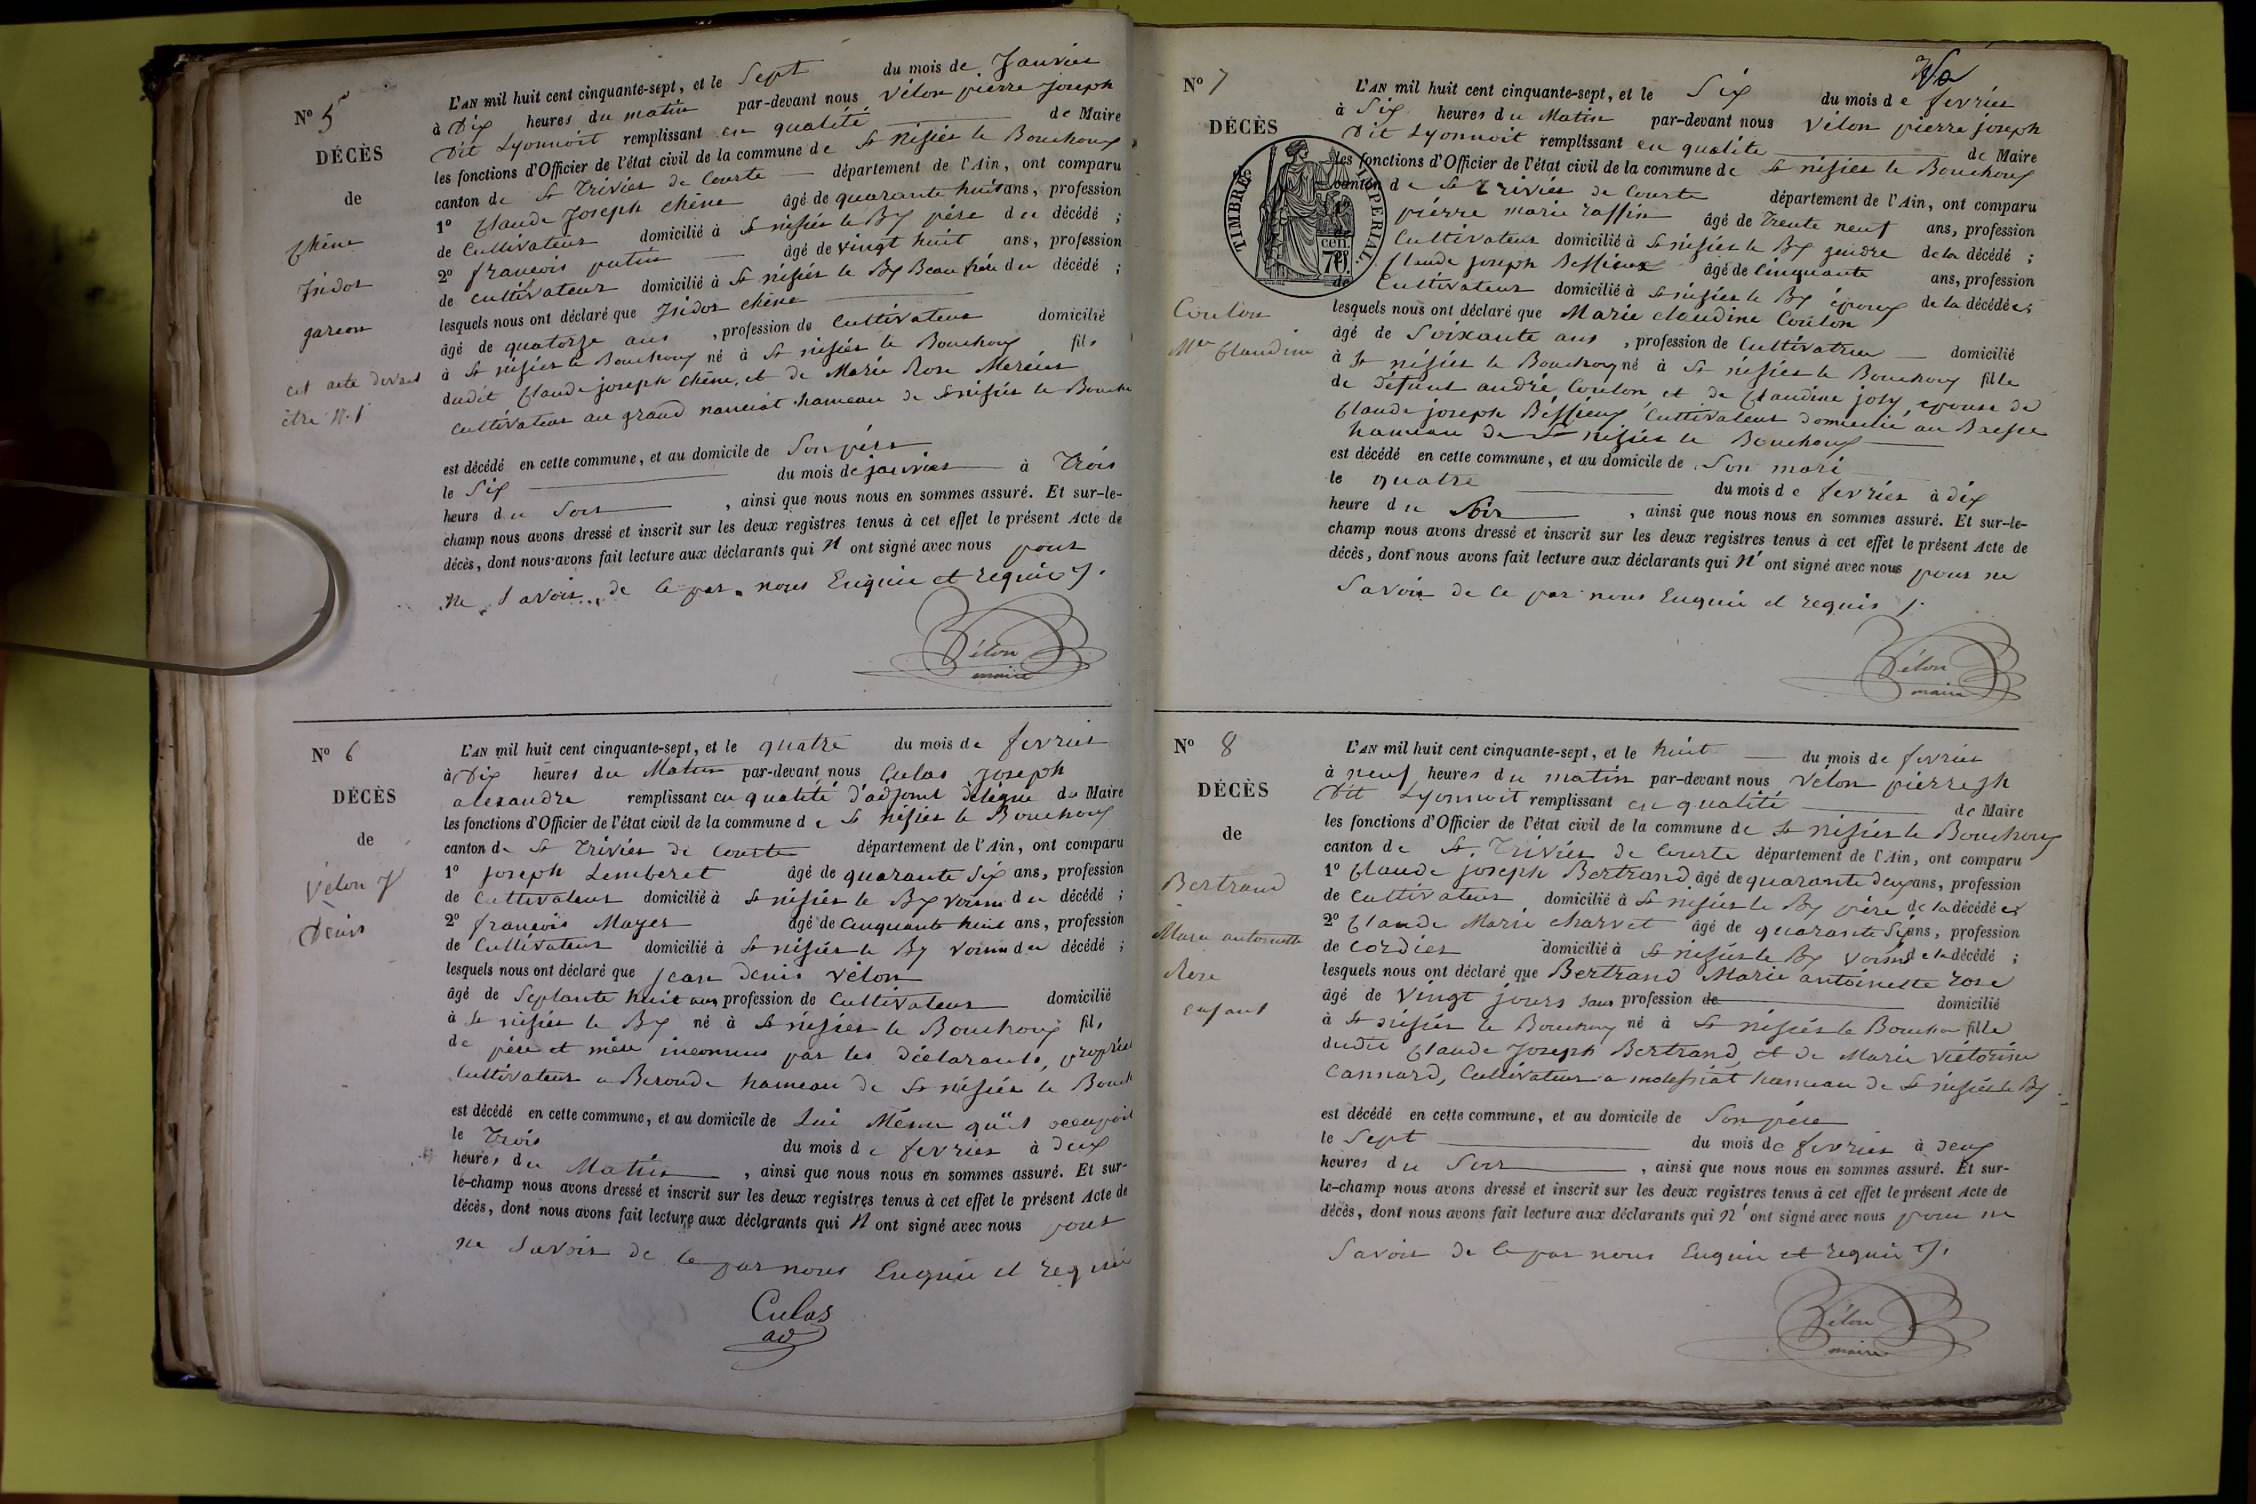 N° 5
DÉCÈS
de
Chêne
Isidor
garcon
cet acte devrait
être N. 1
L'AN mil huit cent cinquante-sept, et le Sept du mois de Janvier
à Dix heures du matin par-devant nous Vélon pierre Joseph
Dit Lyonnoit remplissant en qualité de Maire
les fonctions d'Officier de l'état civil de la commune de St Nisier le Bouchoux
canton de St Trivier de Courte département de l'Ain, ont comparu
1° Claude Joseph Chêne âgé de quarante huit ans, profession
de Cultivateur domicilié à St nisier le Bx père du décédé ;
2° françois putin âgé de vingt huit ans, profession
de Cultivateur domicilié à St nisier le Bx Beau frère du décédé ;
lesquels nous ont déclaré que Isidor Chêne
âgé de quatorze ans , profession de Cultivateur domicilié
à St nisier le Bouchoux né à St nisier le Bouchoux fils
dudit Claude joseph Chêne, et de Marie Rose Mercier
Cultivateur au grand nanciat hameau de St nisier le Bouchx
est décédé en cette commune, et au domicile de Son père
le Six du mois de janvier à Trois
heure du Soir , ainsi que nous nous en sommes assuré. Et sur-le-
champ nous avons dressé et inscrit sur les deux registres tenus à cet effet le présent Acte de
décès, dont nous avons fait lecture aux déclarants qui N ont signé avec nous pour
ne Savoir de ce par nous Enquis et requis /.
Vélon
maire
N° 6
DÉCÈS
de
Vélon J
Denis
L'AN mil huit cent cinquante-sept, et le quatre du mois de fevrier
à Dix heures du Matin par-devant nous Culas Joseph
alexandre remplissant en qualité d'adjoint délégué du Maire
les fonctions d'Officier de l'état civil de la commune de St nisier le Bouchoux
canton de St Trivier de Courte département de l'Ain, ont comparu
1° Joseph Lemberet âgé de quarante Six ans, profession
de Cultivateur domicilié à St nisier le Bx voisin du décédé ;
2° françois Mayer âgé de Cinquante huit ans, profession
de Cultivateur domicilié à St nisier le Bx Voisin du décédé ;
lesquels nous ont déclaré que jean denis vélon
âgé de Septante huit ans profession de Cultivateur domicilié
à St nisier le Bx né à St nisier le Bouchoux fils
de père et mère inconnus par les déclarants, propriét
Cultivateur a Beronde hameau de St nisier le Bouch
est décédé en cette commune, et au domicile de Lui Même qu'il occupoit
le Trois du mois de fevrier à deux
heures du Matin , ainsi que nous nous en sommes assuré. Et sur-
le-champ nous avons dressé et inscrit sur les deux registres tenus à cet effet le présent Acte de
décès, dont nous avons fait lecture aux déclarants qui N ont signé avec nous pour
ne Savoir de ce par nous Enquis et requis
Culas
ad
N° 7
DÉCÈS
TIMBRE IMPÉRIAL
70 cen.
Coulon
Mie Claudine
L'AN mil huit cent cinquante-sept, et le Six du mois de fevrier
à Six heures du Matin par-devant nous Vélon pierre joseph
Dit Lyonnoit remplissant en qualité de Maire
les fonctions d'Officier de l'état civil de la commune de St nisier le Bouchoux
canton de St Trivier de Courte département de l'Ain, ont comparu
pierre marie raffin âgé de Trente neuf ans, profession
Cultivateur domicilié à St nisier le Bx gendre de la décédé ;
Claude joseph Beffieux âgé de Cinquante ans, profession
de Cultivateur domicilié à St nisier le Bx époux de la décédée
lesquels nous ont déclaré que Marie Claudine Coulon
âgé de Soixante ans , profession de Cultivatrice domicilié
à St nisier le Bouchoux né à St nisier le Bouchoux fille
de défunt andré Coulon et de Claudine josy epouse de
Claude joseph Béffieux Cultivateur domicilié au
hameau de St nisier le Bouchoux
est décédé en cette commune, et au domicile de Son mari
le quatre du mois de fevrier à dix
heure du Soir , ainsi que nous nous en sommes assuré. Et sur-le-
champ nous avons dressé et inscrit sur les deux registres tenus à cet effet le présent Acte de
décès, dont nous avons fait lecture aux déclarants qui N' ont signé avec nous pour ne
Savoir de ce par nous Enquis et requis /.
Vélon
maire
N° 8
DÉCÈS
de
Bertrand
Marie antoinette
Rose
enfant
L'AN mil huit cent cinquante-sept, et le huit du mois de fevrier
à neuf heures du matin par-devant nous Vélon pierre jh
Dit Lyonnoit remplissant en qualité de Maire
les fonctions d'Officier de l'état civil de la commune de St nisier le Bouchoux
canton de St. Trivier de Courte département de l'Ain, ont comparu
1° Claude joseph Bertrand âgé de quarante deux ans, profession
de Cultivateur domicilié à St nisier le Bx père de la décédée
2° Claude Marie Charvet âgé de quarante Six ans, profession
de Cordier domicilié à St nisier le Bx voisin de la décédé ;
lesquels nous ont déclaré que Bertrand Marie antoinette rose
âgé de Vingt jours Sans profession de domicilié
à St nisier le Bouchoux né à St nisier le Bouchou fille
dudit Claude Joseph Bertrand, et de Marie Victorine
Cannard, Cultivateur a molefriat hameau de St nisier le Bx
est décédé en cette commune, et au domicile de Son père
le Sept du mois de fevrier à deux
heures du Soir , ainsi que nous nous en sommes assuré. Et sur-
le-champ nous avons dressé et inscrit sur les deux registres tenus à cet effet le présent Acte de
décès, dont nous avons fait lecture aux déclarants qui N' ont signé avec nous pour ne
Savoir de ce par nous Enquis et requis /.
Vélon
maire